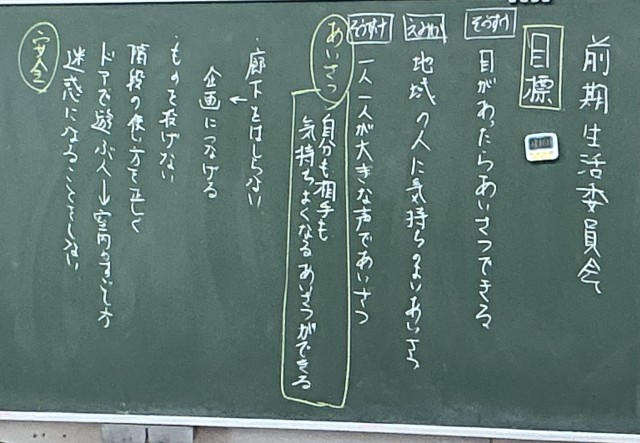 前期生活委員会
目標
そうすけ
目があったらあいさつできる
えみか
地域の人に気持ちのよいあいさつ
そうすけ
一人一人が大きな声であいさつ
あいさつ
自分も相手も
気持ちよくなるあいさつができる
・廊下をはしらない
企画につなげる
・ものを投げない
階段の使い方を正しく
ドアで遊ぶ人→室内のすごし方
迷惑になることをしない
安全